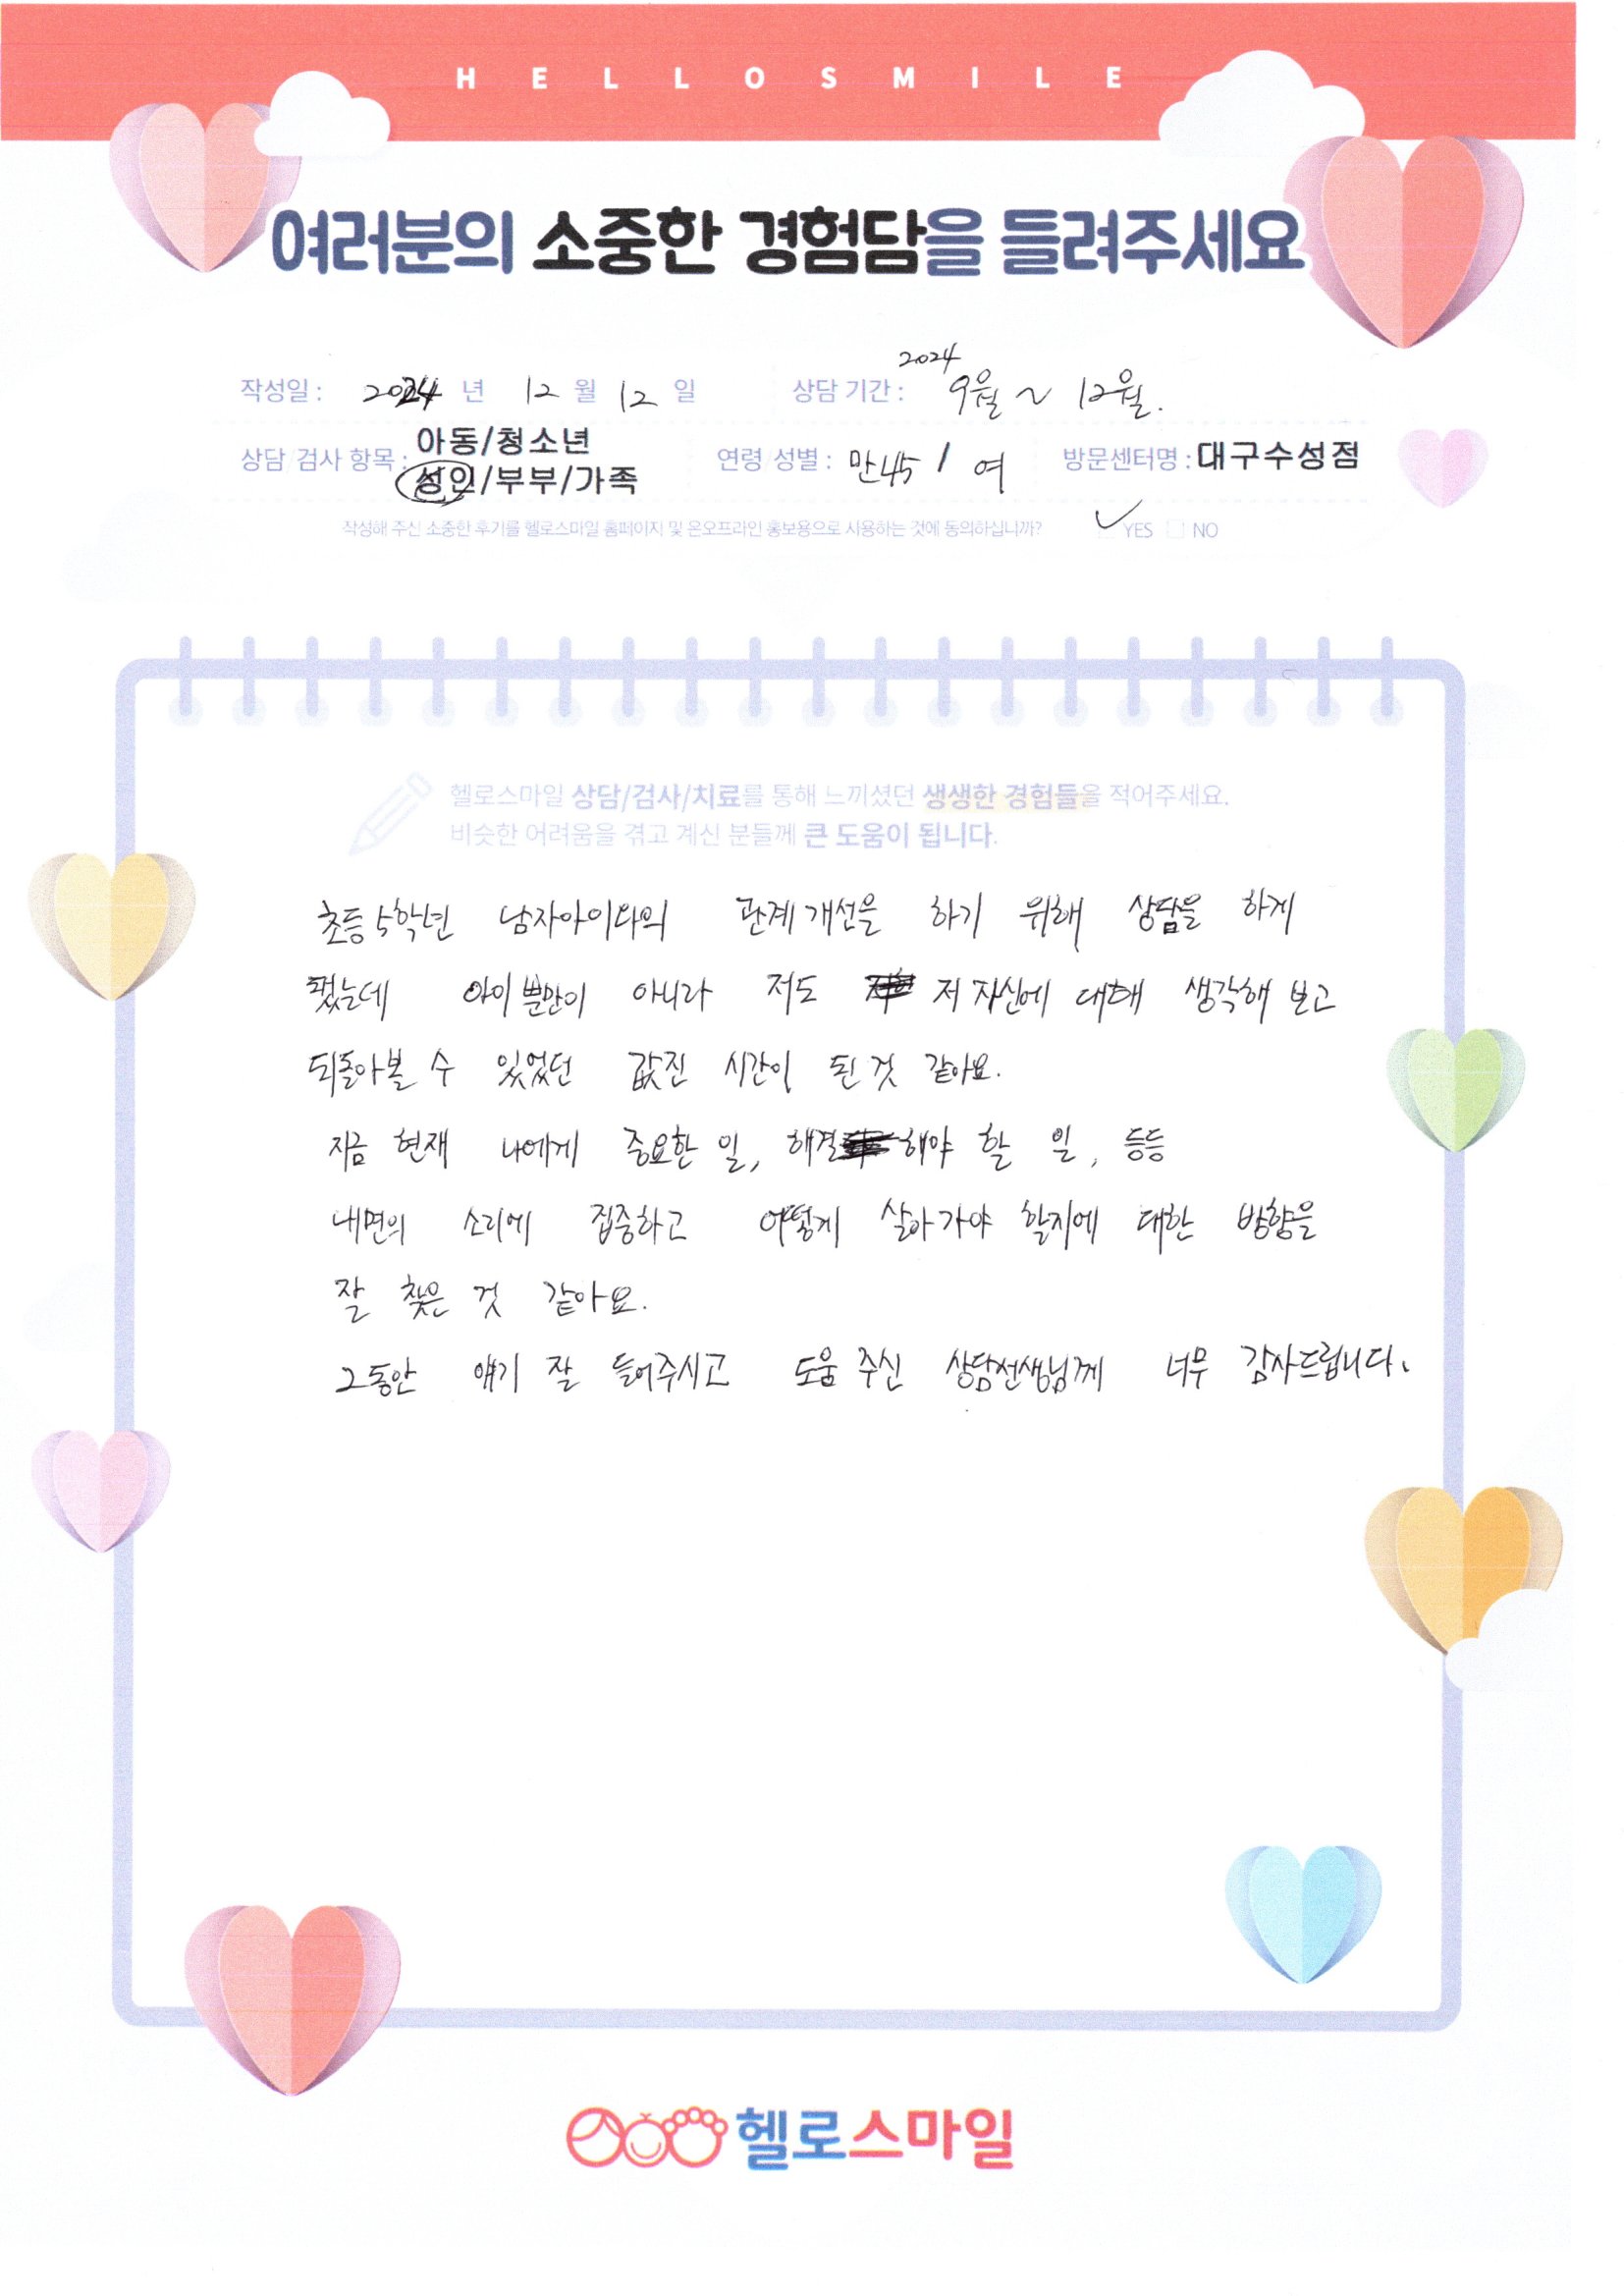 HELLOSMILE
여러분의 소중한 경험담을 들려주세요
작성일 : 2024 년 12 월 12 일 상담 기간 : 2024 9월 ~ 12월.
상담 검사 항목 : 아동/청소년
성인/부부/가족
연령 성별 : 만45 / 여 방문센터명 : 대구수성점
작성해 주신 소중한 후기를 헬로스마일 홈페이지 및 온오프라인 홍보용으로 사용하는 것에 동의하십니까? YES NO
헬로스마일 상담/검사/치료를 통해 느끼셨던 생생한 경험들을 적어주세요.
비슷한 어려움을 겪고 계신 분들께 큰 도움이 됩니다.
초등 5학년 남자아이와의 관계 개선을 하기 위해 상담을 하게
됐는데 아이 뿐만이 아니라 저도 저 자신에 대해 생각해 보고
되돌아볼 수 있었던 값진 시간이 된 것 같아요.
지금 현재 나에게 중요한 일, 해결해야 할 일, 등등
내면의 소리에 집중하고 어떻게 살아가야 할지에 대한 방향을
잘 찾은 것 같아요.
그동안 얘기 잘 들어주시고 도움 주신 상담선생님께 너무 감사드립니다.
헬로스마일